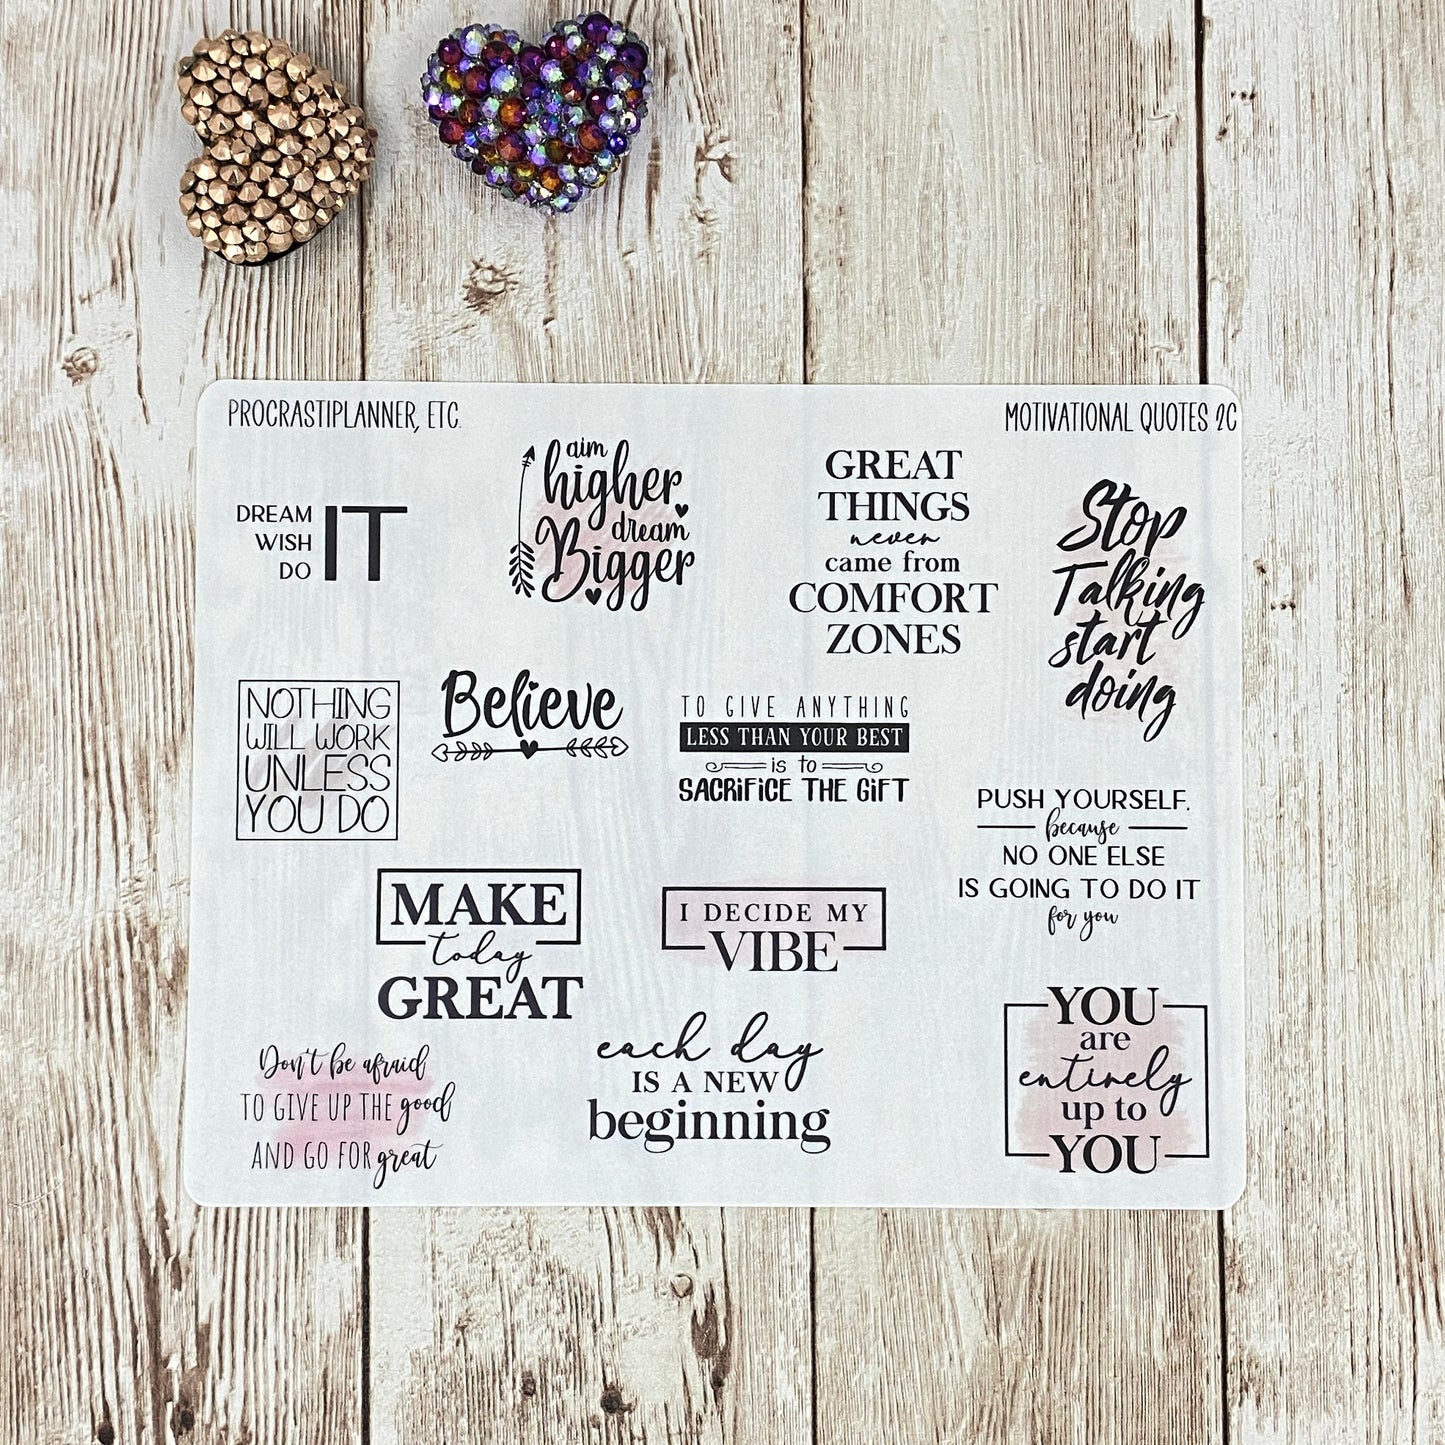 PROCRASTIPLANNER, ETC.
MOTIVATIONAL QUOTES 2C
DREAM
WISH
DO
IT
aim
higher
dream
Bigger
GREAT
THINGS
never
came from
COMFORT
ZONES
Stop
Talking
start
doing
NOTHING
WILL WORK
UNLESS
YOU DO
Believe
TO GIVE ANYTHING
LESS THAN YOUR BEST
is to
SACRIFICE THE GIFT
PUSH YOURSELF,
because
NO ONE ELSE
IS GOING TO DO IT
for you
MAKE
today
GREAT
I DECIDE MY
VIBE
YOU
are
entirely
up to
YOU
Don't be afraid
TO GIVE UP THE good
AND GO FOR great
each day
IS A NEW
beginning